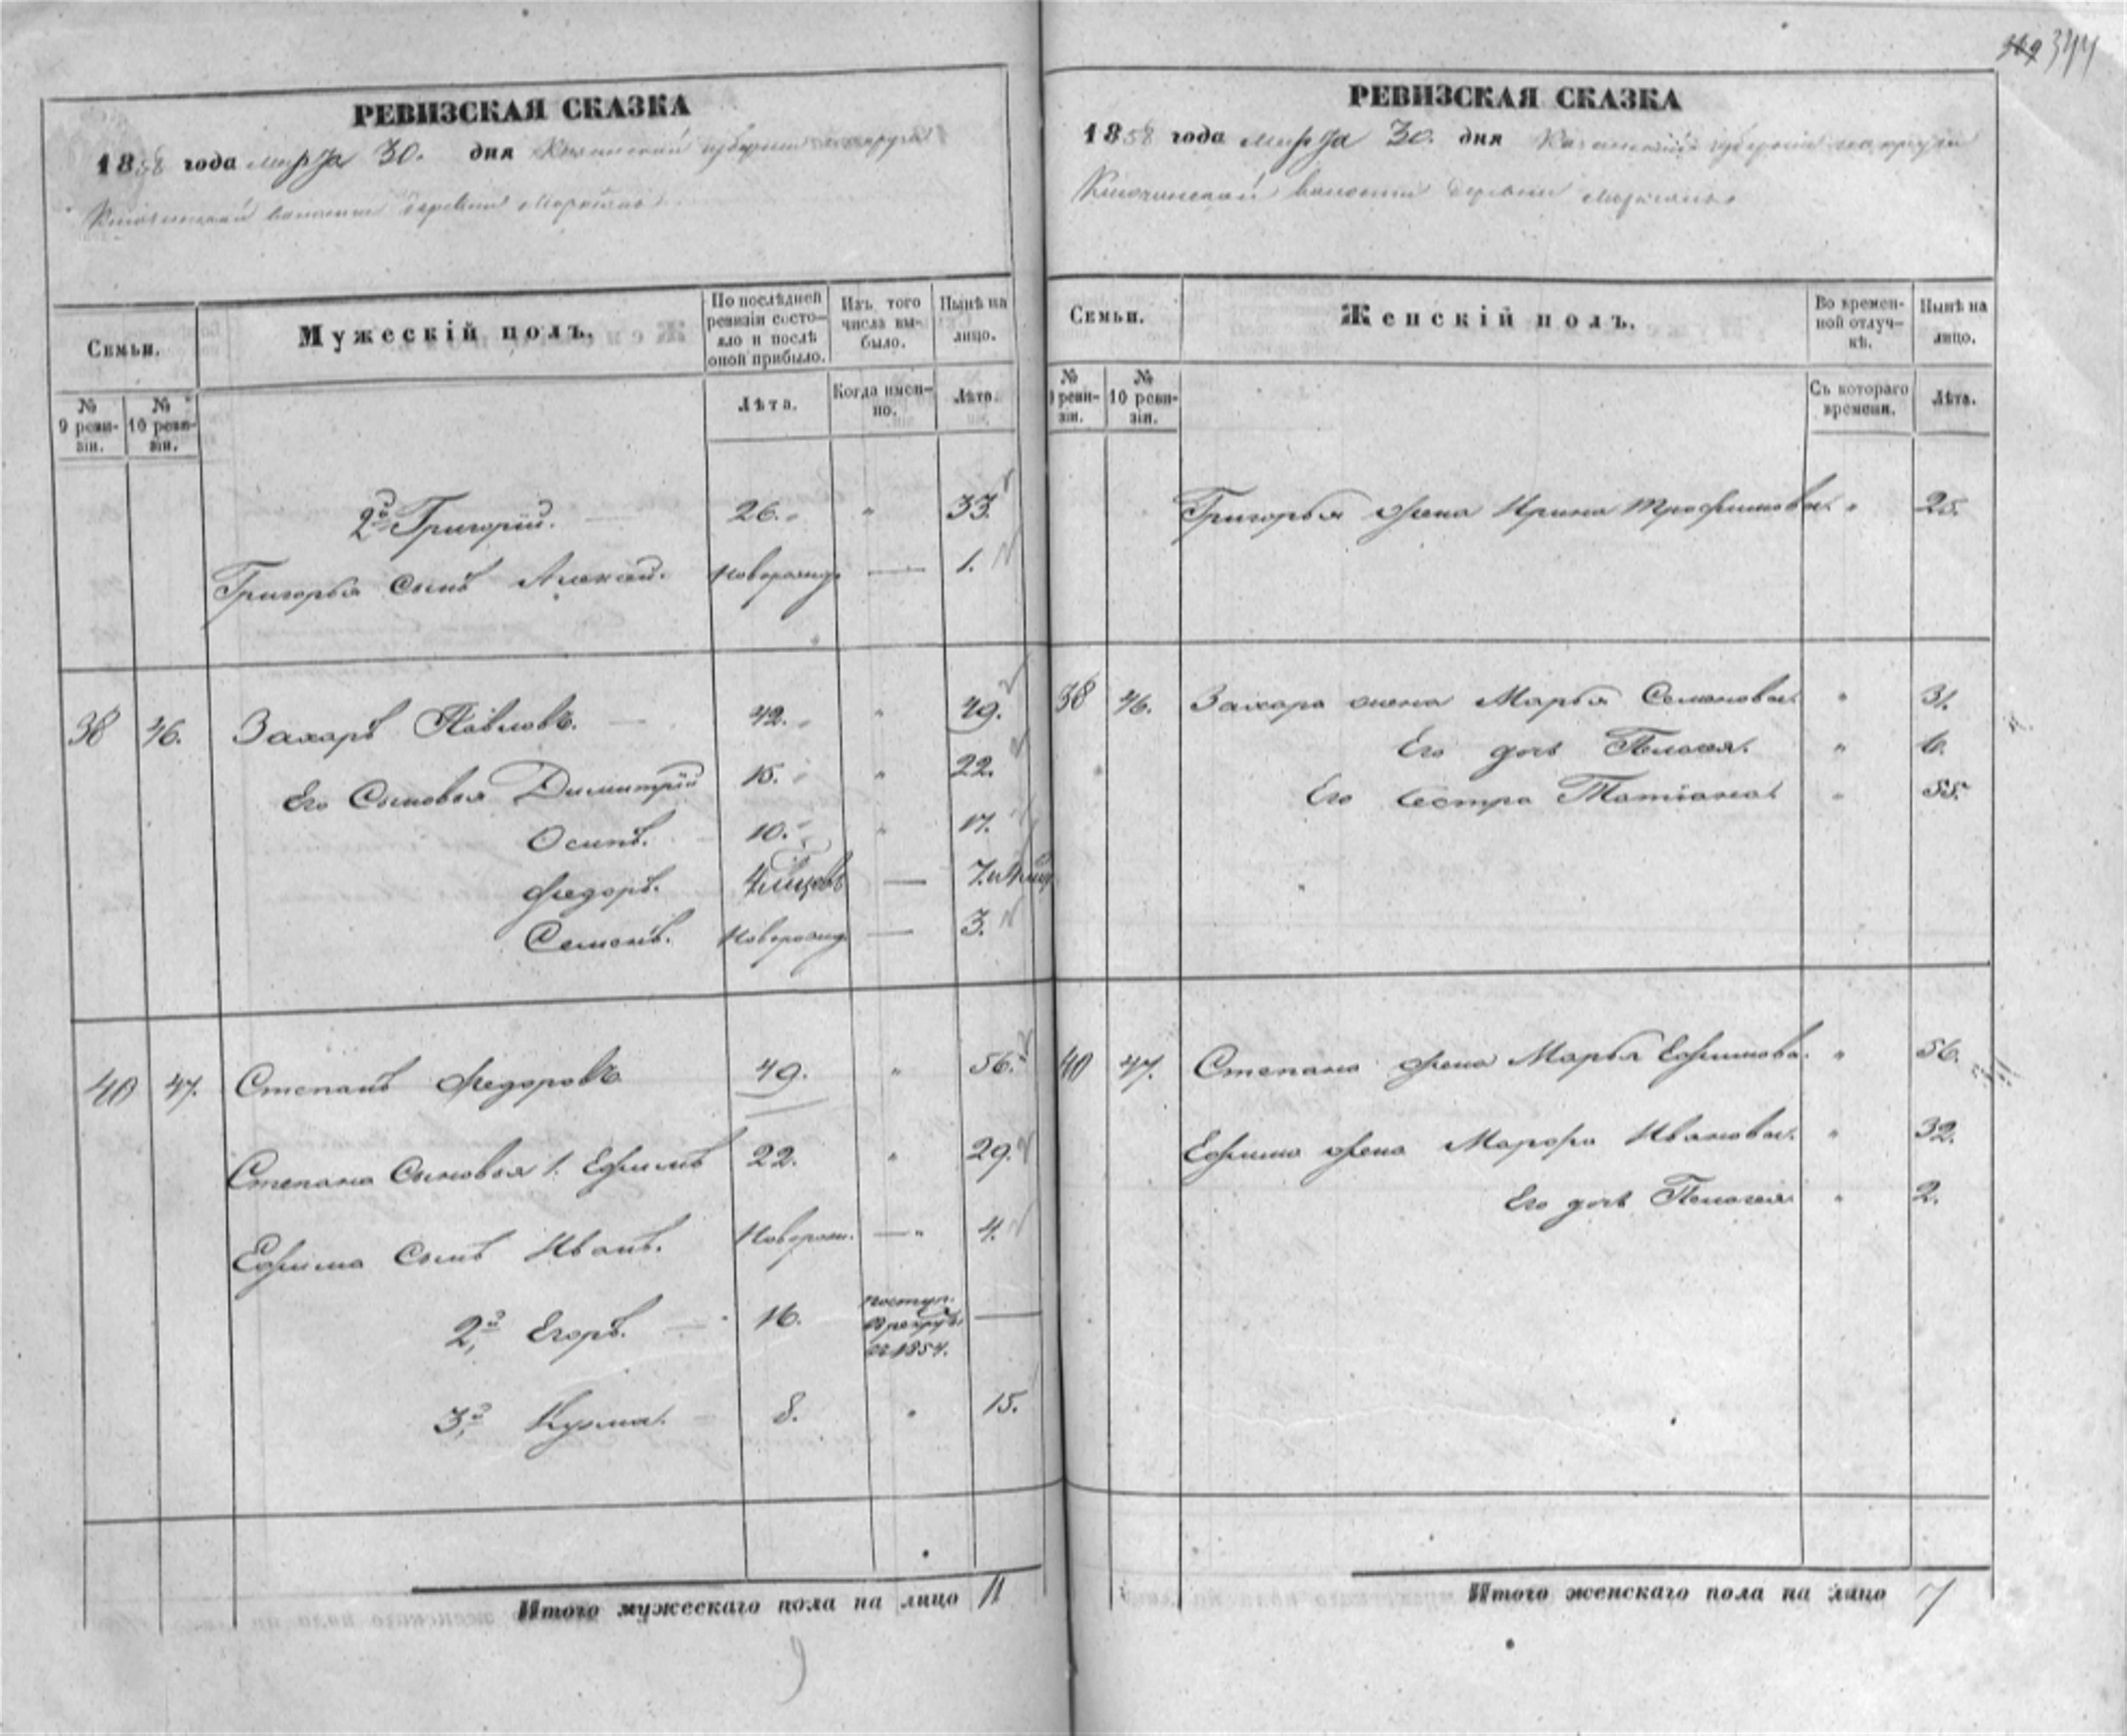 344
РЕВИЗСКАЯ СКАЗКА
1858 года марта 30. дня Казанской губерніи округа
волости деревни
Семьи.
Мужескій полъ.
По послѣдней ревизіи состояло и послѣ оной прибыло.
Изъ того числа выбыло.
Нынѣ на лицо.
№ 9 ревизіи.
№ 10 ревизіи.
Лѣта.
Когда именно.
Лѣта.
2й Григорій. 26. " 33.
Григорья сынъ Алексей. новорожд. — 1.
38 46. Захаръ Павловъ. 42. " 49.
Его Сыновья Димитрій 15. " 22.
Осипъ. 10. " 17.
Федоръ. —
Семенъ. новорожд. — 3.
40 47. Степанъ Федоровъ 49. " 56.
Степана Сыновья 1. Ефимъ 22. " 29.
Ефима Сынъ Иванъ. Новорож. — " 4.
2й Егоръ. 16. поступ. в рекрут. въ 1854. —
3й Кузма. 8. " 15.
Итого мужескаго пола на лицо 11
РЕВИЗСКАЯ СКАЗКА
1858 года марта 30. дня Казанской губерніи округа
волости деревни
Семьи.
Женскій полъ.
Во временной отлучкѣ.
Нынѣ на лицо.
№ 9 ревизіи.
№ 10 ревизіи.
Съ котораго времени.
Лѣта.
Григорья жена Ирина Трофимова. " 25.
38 46. Захара жена Марья Семенова. " 31.
Его дочь Пелагея. " 6.
Его сестра Татіана. " 55.
40 47. Степана жена Марья Ефимова. " 56.
Ефима жена Марфа Иванова. " 32.
Его дочь Пелагея. " 2.
Итого женскаго пола на лицо 7